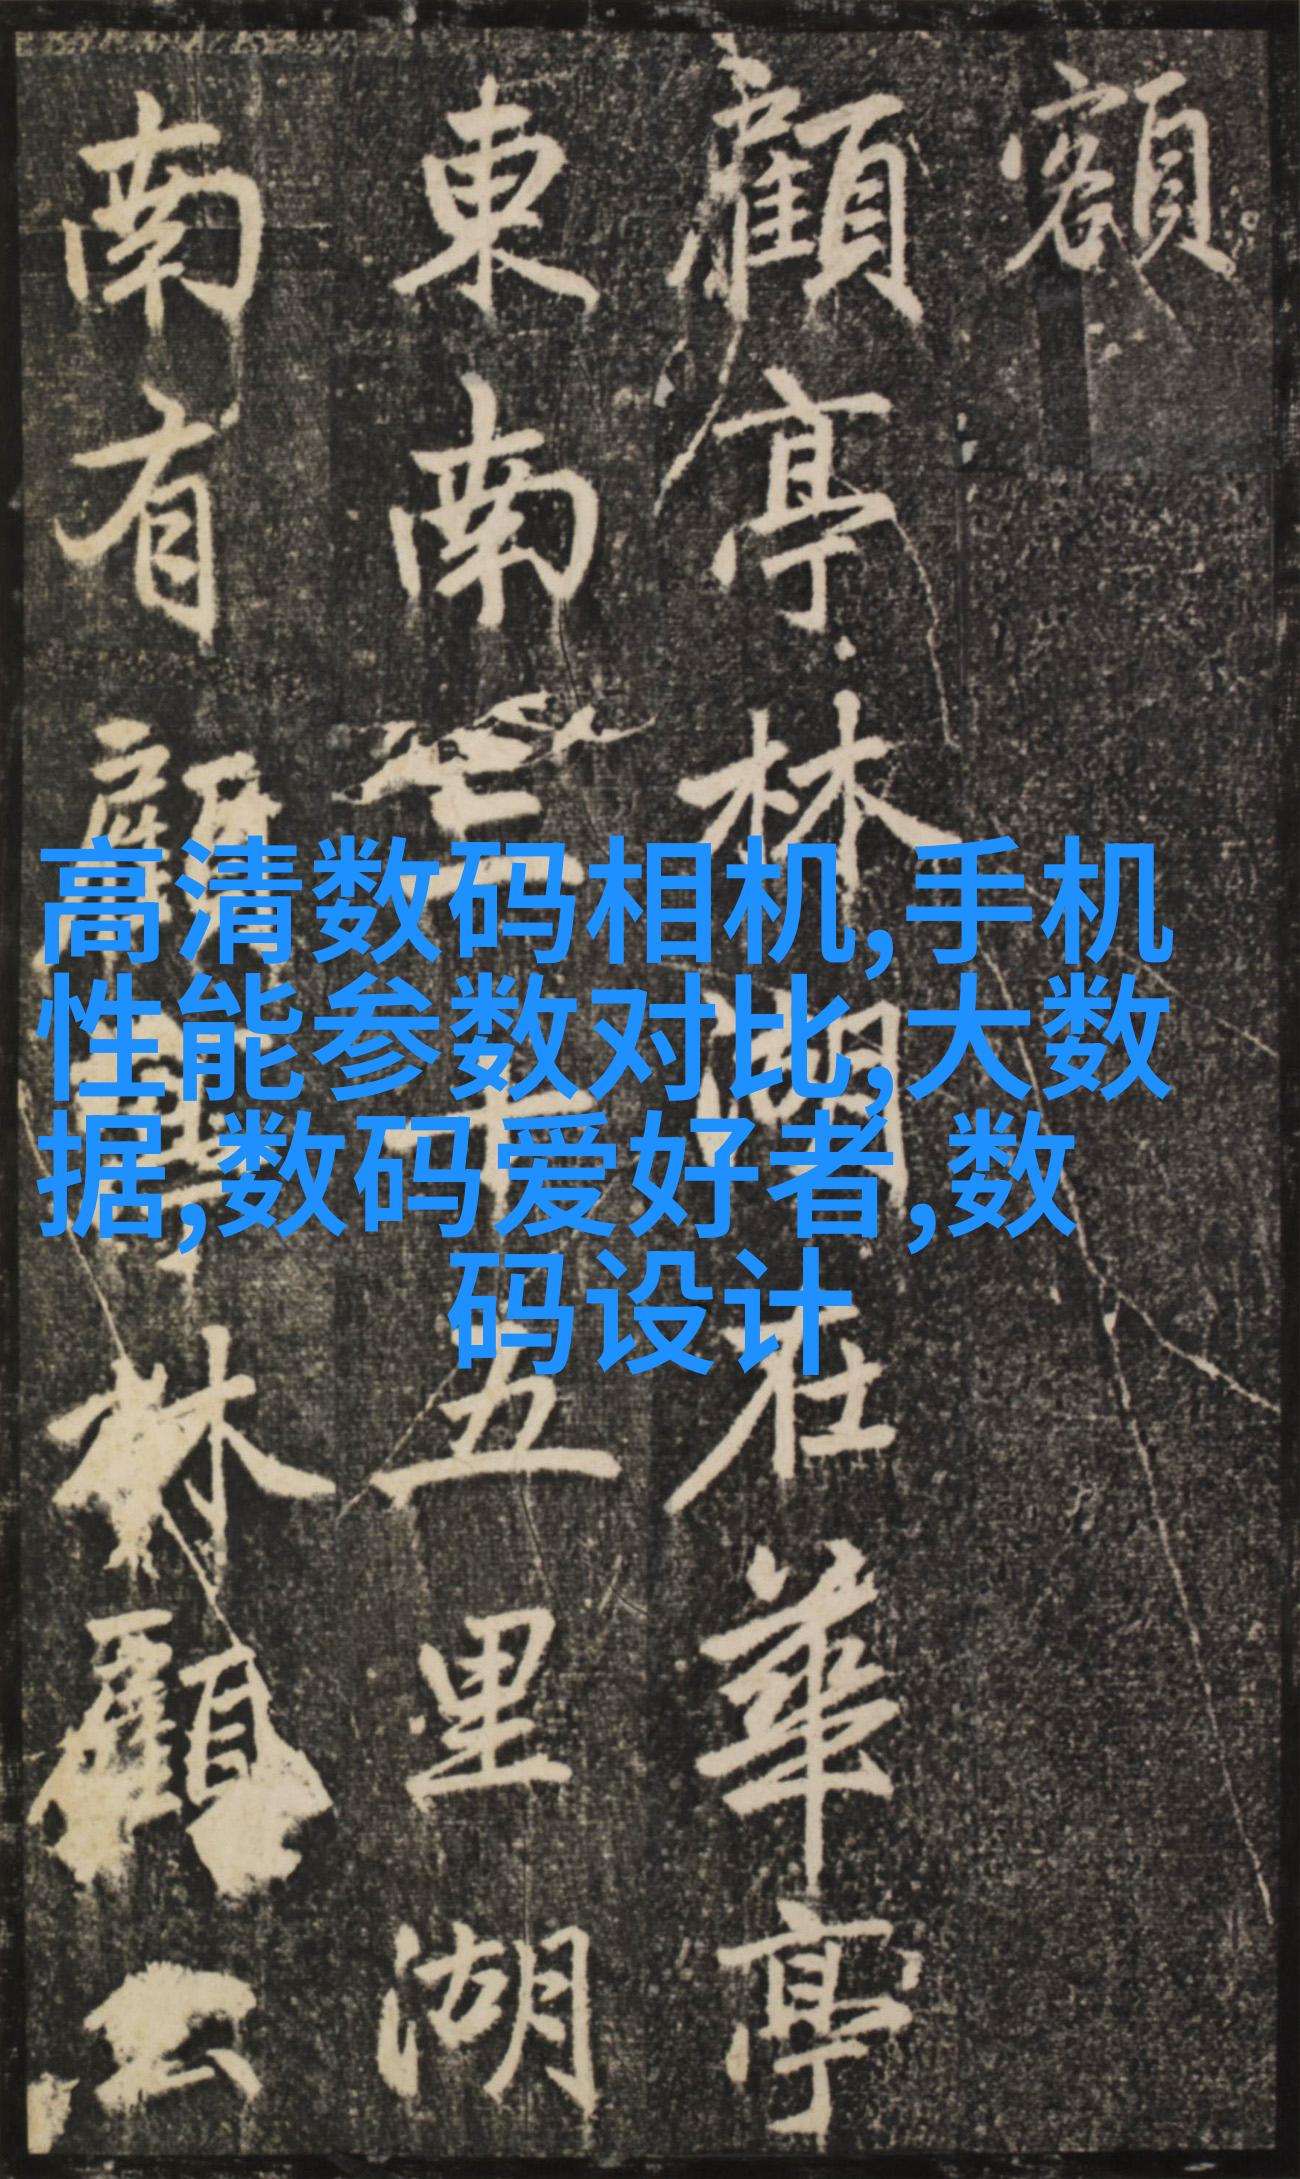 額
顧亭林湖在華亭
東南三十五里湖
南有顧亭林顧公
高清数码相机,手机
性能参数对比,大数
据,数码爱好者,数
码设计